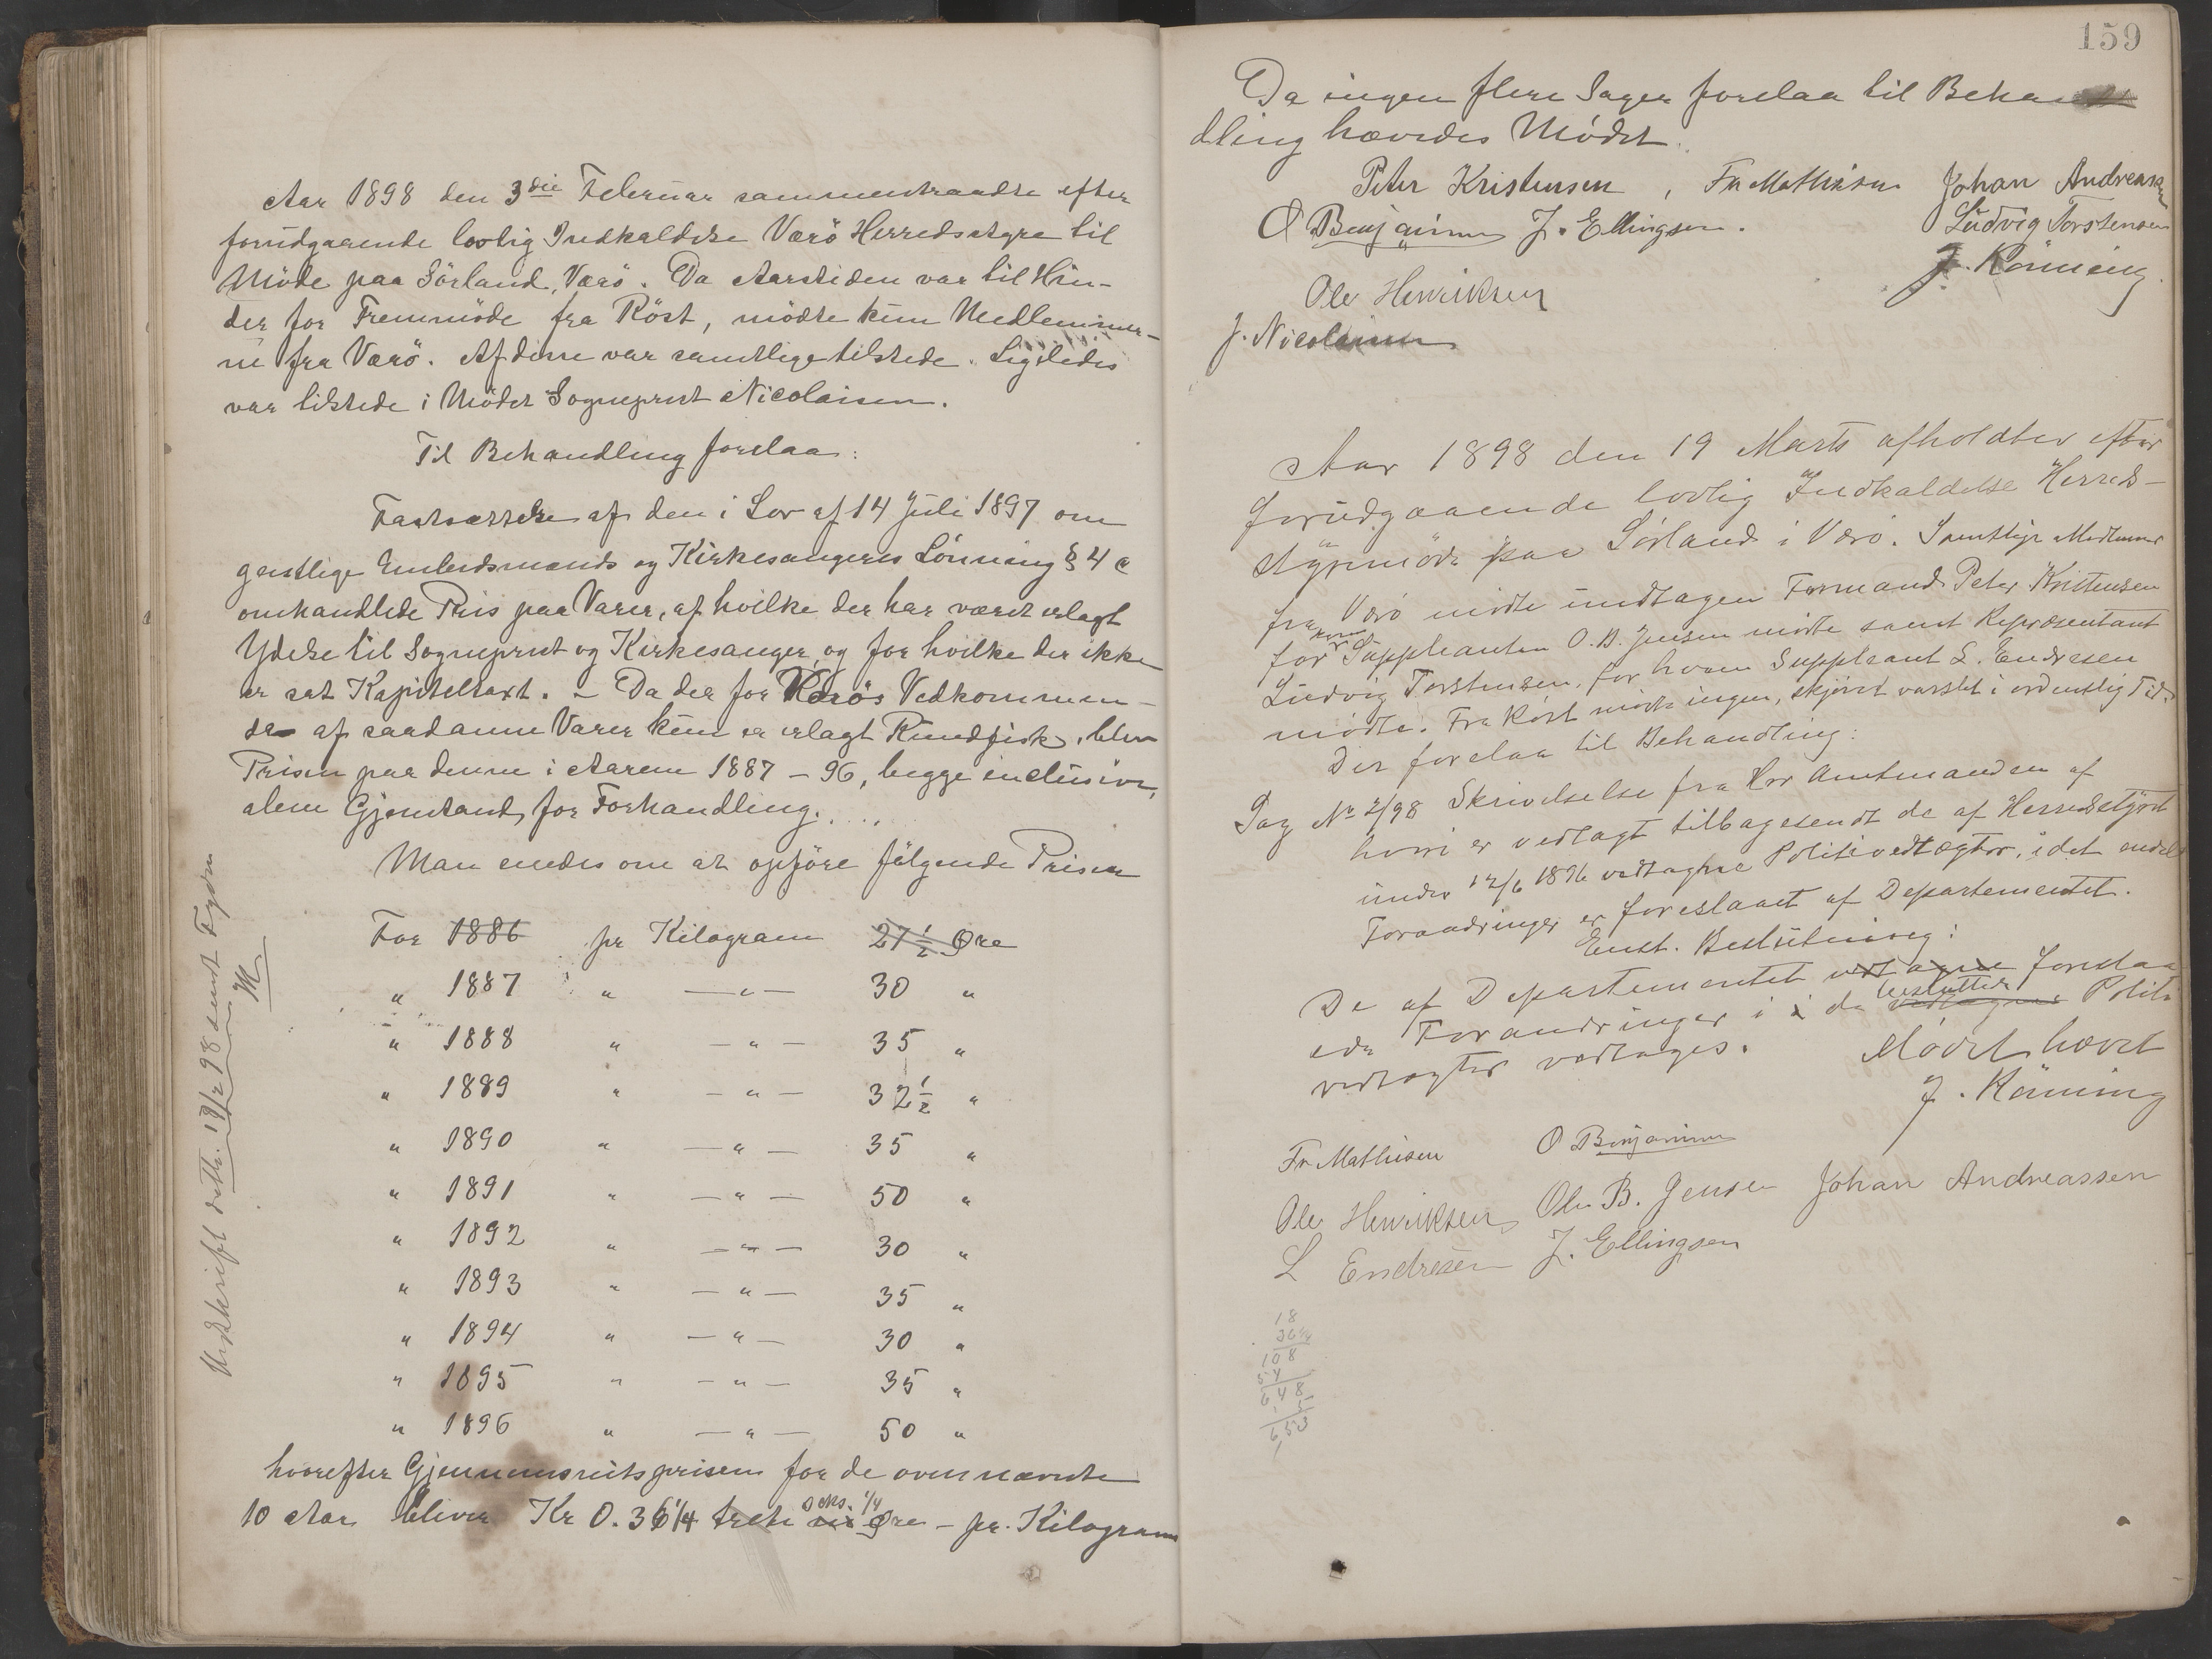 Aar 1898 den 3die Februar sammentraadte efter
forudgaaende lovlig Indkaldelse Værö Herredsstyre til
Möde paa Sörland, Værö. Da Aarstiden var til Hin-
der for Fremmöde fra Röst, mödte kun Medlemmer-
ne fra Værö. Af disse var samtlige tilstede. Ligeledes
var tilstede i Mödet Sogneprest Nicolaisen.
Til Behandling forelaa:
Fastsættelse af den i Lov af 14 Juli 1897 om
geistlige Embedsmænds og Kirkesangeres Lönning § 4 c
omhandlede Pris paa Varer, af hvilke der har været erlagt
Ydelse til Sogneprest og Kirkesanger, og for hvilke der ikke
er sat Kapitelstaxt. - Da der for Værös Vedkommen-
de af saadanne Varer kun er erlagt Rundfisk, blev
Prisen paa denne i Aarene 1887 - 96, begge inclusive,
alene Gjenstand for Forhandling.
Man enedes om at opföre fölgende Priser
For 1886 pr Kilogram 27 1/2 Øre
" 1887 " - " - 30 "
" 1888 " - " - 35 "
" 1889 " - " - 32 1/2 "
" 1890 " - " - 35 "
" 1891 " - " - 50 "
" 1892 " - " - 30 "
" 1893 " - " - 35 "
" 1894 " - " - 30 "
" 1895 " - " - 35 "
" 1896 " - " - 50 "
hvorefter Gjennemsnitsprisen for de ovennævnte
10 Aar bliver Kr 0.36 1/4 treti seks. 1/4 Øre - pr. Kilogram
Udskrift dette. 18/2 98 sendt
159
Da ingen flere Sager forelaa til Behan
dling hævedes Mödet.
Peter Kristensen, Fr Mathisen Johan Andreassen
O Benjaminsen J. Ellingsen. Ludvig Torstensen
J. Rönning
Ole Henriksen
J. Nicolaisen
Aar 1898 den 19 Marts afholdtes efter
forudgaaende lovlig Indkaldelse Herreds-
styremöde paa Sörland i Værö. Samtlige Medlemmer
fra Værö mödte undtagen Formand Peter Kristensen
for hvem Suppleanten O. B. Jensen mödte samt Repræsentant
Ludvig Torstensen, for hvem Suppleant L. Endresen
mödte. Fra Röst mödte ingen, skjönt varslet i ordentlig Tid.
Der forelaa til Behandling:
Sag No 2/98 Skrivelse fra Hr Amtmanden af
hvori er vedlagt tilbagesendt de af Herredsstyret
under 12/6 1896 vedtagne Politivedtægter, idet endel
Forandringer er foreslaaet af Departementet.
Enst. Beslutning:
De af Departementet vedtagne foreslaa
ede Forandringer i de vedtagne besluttede Politi
vedtægter vedtages.
Mödet hævet
J. Röning
Fr Mathisen O Benjaminsen
Ole Henriksen Ole B. Jensen Johan Andreassen
L Endresen J. Ellingsen
18
36 1/4
108
54
648
5
6,53